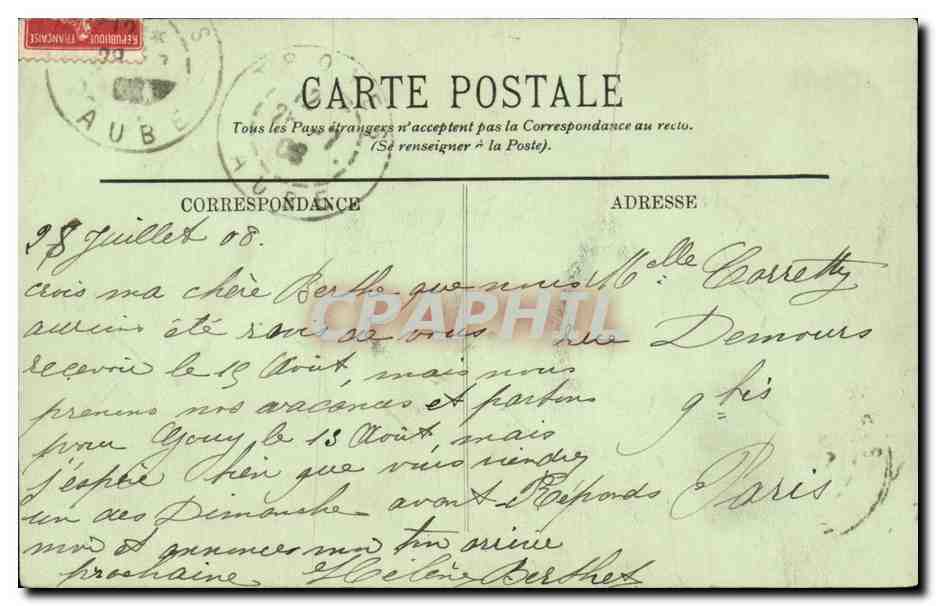 REPUBLIQUE FRANÇAISE
AUBE
AUBE
CARTE POSTALE
Tous les Pays étrangers n'acceptent pas la Correspondance au recto.
(Se renseigner à la Poste).
CORRESPONDANCE
28 Juillet 08.
crois ma chère Berthe que nous
aurions été ravis de vous
recevoir le 15 Août, mais nous
prenons nos vacances et partons
pour Gouy le 13 Août, mais
j'espère bien que vous viendrez
un des Dimanche avant Réponds
moi et annonces mon ton arrivée
prochaine Hélène Berthet
ADRESSE
Melle Corretty
rue Demours
9 bis
Paris
CPAPHIL